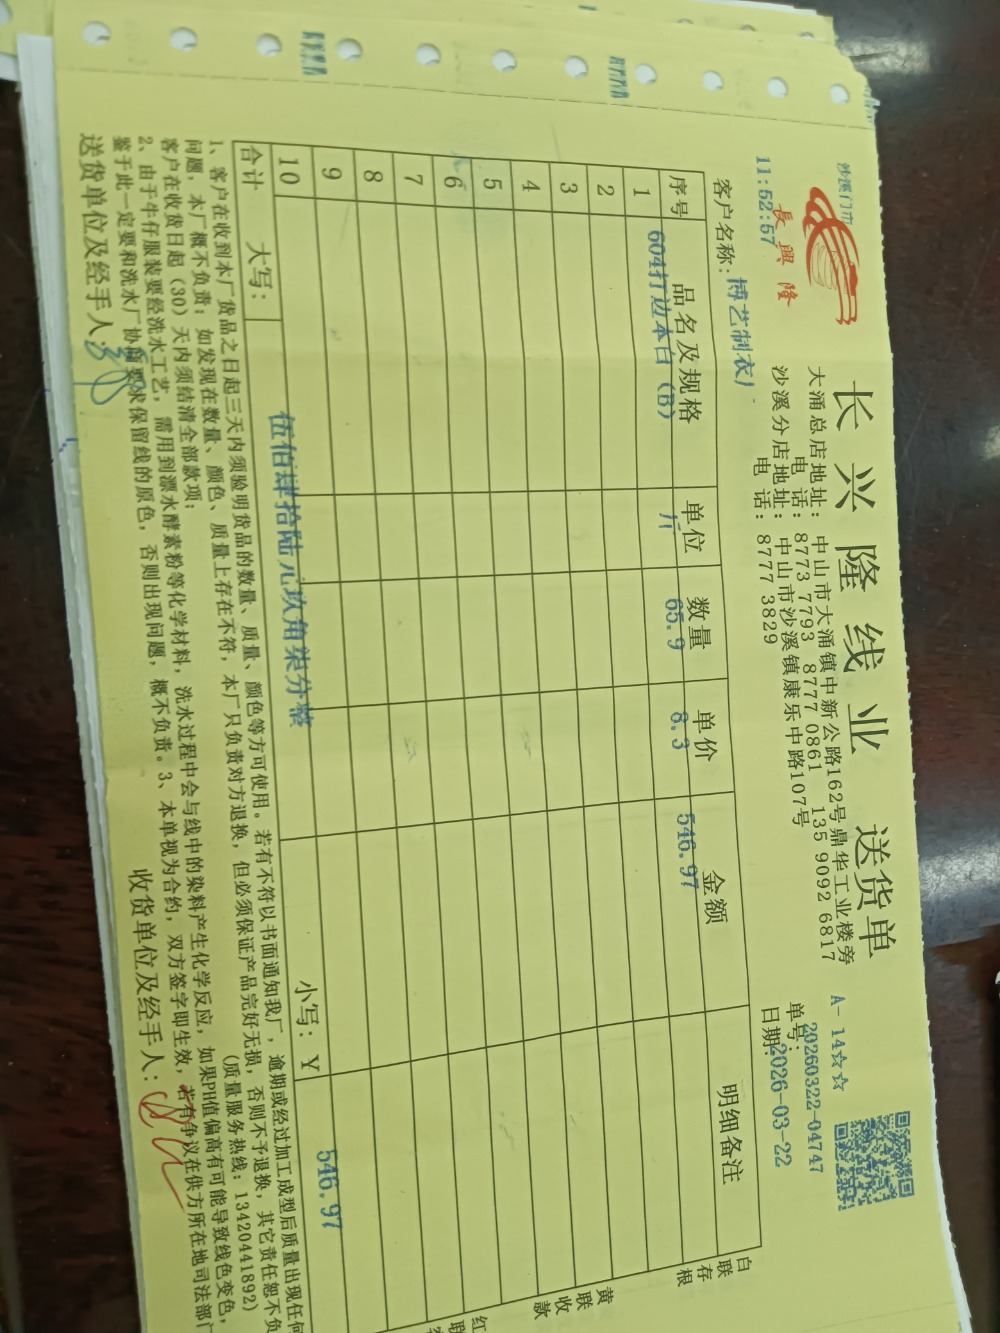 沙溪门市
長興隆
11:52:57
长兴隆线业 送货单
大涌总店地址：中山市大涌镇中新公路162号鼎华工业楼旁
电 话：8773 7793 8777 0861 135 9092 6817
沙溪分店地址：中山市沙溪镇康乐中路107号
电 话：8777 3829
A- 14☆☆
单号：20260322-04747
日期：2026-03-22
客户名称：博艺制衣厂
序号 品名及规格 单位 数量 单价 金额 明细备注
1 604打边本白（B） 斤 65.9 8.3 546.97
2
3
4
5
6
7
8
9
10
合计 大写： 伍佰肆拾陆元玖角柒分整 小写：￥ 546.97
白联存根
黄联收款
红联
1、客户在收到本厂货品之日起三天内须验明货品的数量、质量、颜色等方可使用。若有不符以书面通知我厂，逾期或经过加工成型后质量出现任何
问题，本厂概不负责；如发现在数量、颜色、质量上存在不符，本厂只负责对方退换，但必须保证产品完好无损，否则不予退换，其它责任恕不负
客户在收货日起（30）天内须结清全部款项； （质量服务热线：13420441892）
2、由于牛仔服装要经洗水工艺，需用到漂水酵素粉等化学材料，洗水过程中会与线中的染料产生化学反应，如果PH值偏高有可能导致线色变色，
鉴于此一定要和洗水厂协商要求保留线的原色，否则出现问题，概不负责。3、本单视为合约，双方签字即生效，若有争议在供方所在地司法部门
送货单位及经手人： 收货单位及经手人：